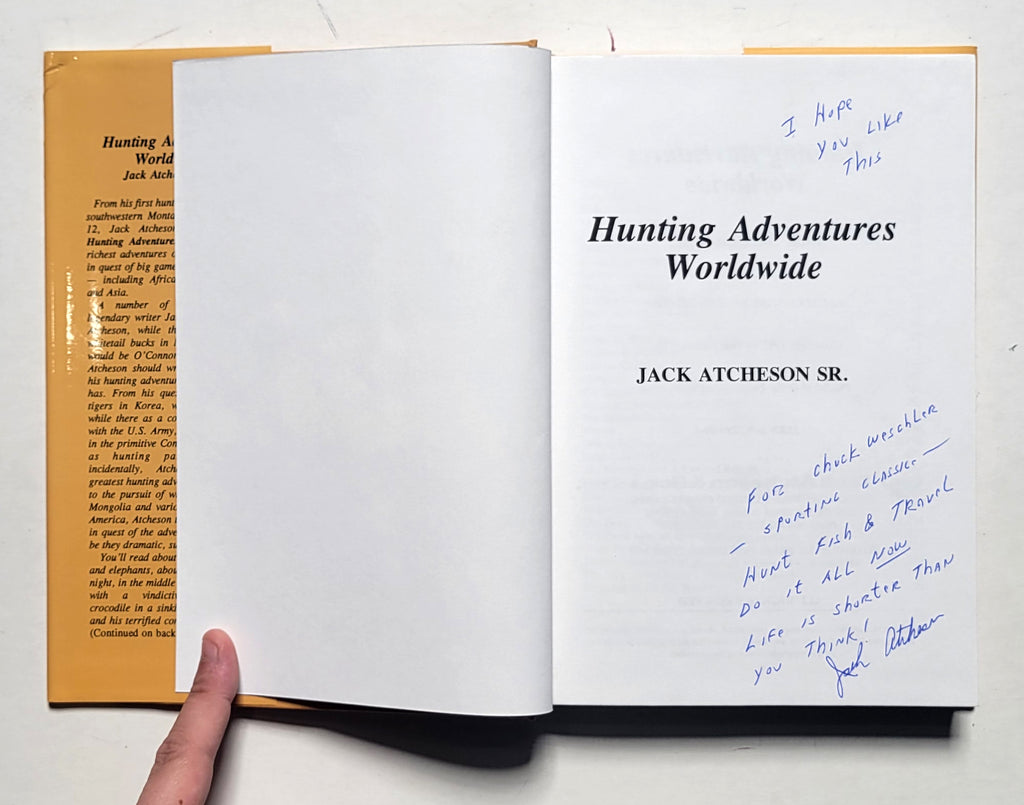 Hunting A
World
Jack Atche
From his first hunt
southwestern Monta
12, Jack Atcheson
Hunting Adventures
richest adventures
in quest of big game
— including Africa
and Asia.
A number of
legendary writer Ja
Atcheson, while th
whitetail bucks in
would be O'Connor
Atcheson should wr
his hunting adventu
has. From his que
tigers in Korea, w
while there as a co
with the U.S. Army,
in the primitive Con
as hunting pa
incidentally, Atch
greatest hunting adv
to the pursuit of w
Mongolia and vario
America, Atcheson
in quest of the adve
be they dramatic, su
You'll read about
and elephants, abou
night, in the middle
with a vindictiv
crocodile in a sinki
and his terrified co
(Continued on back
I Hope
you Like
This
Hunting Adventures
Worldwide
JACK ATCHESON SR.
For chuck weschler
— sporting classic —
Hunt Fish & Travel
Do it ALL NOW
Life is shorter Than
you Think!
Jack Atcheson